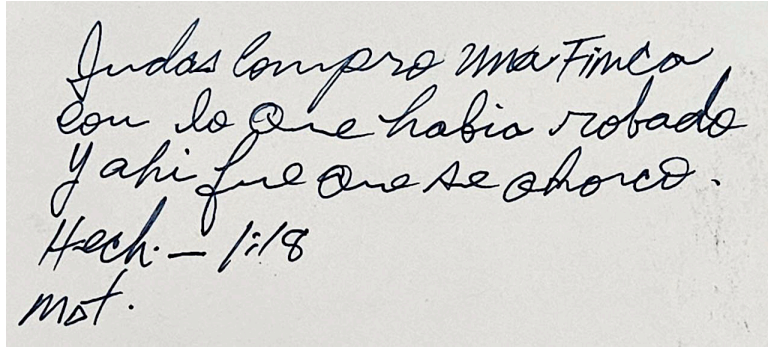 Judas Compro una Finca
con lo Que habia robado
y ahi fue Que se ahorco.
Hech. - 1:18
Mat.